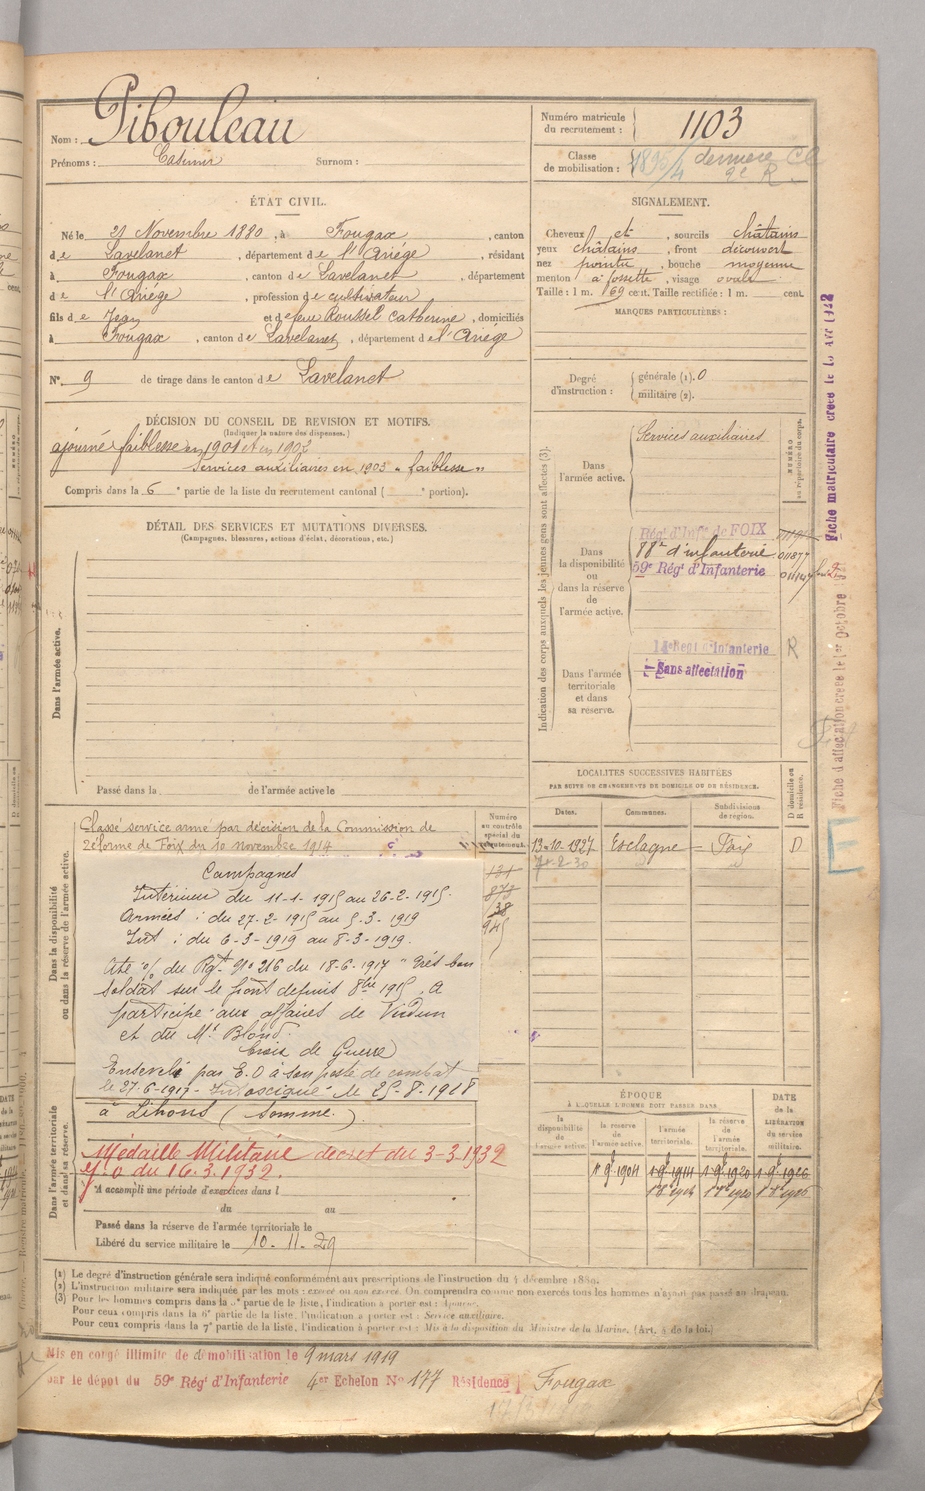 Nom : Pibouleau
Prénoms : Casimir Surnom :
Numéro matricule du recrutement : 1103
Classe de mobilisation : dernière Cl
2e R.
ÉTAT CIVIL.
Né le 21 Novembre 1880, à Fougax, canton
de Lavelanet, département de l'Ariége, résidant
à Fougax, canton de Lavelanet, département
de l'Ariége, profession de cultivateur
fils de Jean et de feue Roussel Catherine, domiciliés
à Fougax, canton de Lavelanet, département de l'Ariége
N° 9 de tirage dans le canton de Lavelanet
SIGNALEMENT.
Cheveux et, sourcils châtains
yeux châtains, front découvert
nez pointu, bouche moyenne
menton à fossette, visage ovale
Taille : 1 m. 69 cent. Taille rectifiée : 1 m. cent.
MARQUES PARTICULIÈRES :
Degré d'instruction : générale (1). 0
militaire (2).
DÉCISION DU CONSEIL DE REVISION ET MOTIFS.
(Indiquer la nature des dispenses.)
ajourné faiblesse en 1901 et en 1902
Services auxiliaires en 1903 "faiblesse"
Compris dans la 6e partie de la liste du recrutement cantonal ( e portion).
DÉTAIL DES SERVICES ET MUTATIONS DIVERSES.
(Campagnes, blessures, actions d'éclat, décorations, etc.)
Dans l'armée active.
Passé dans la de l'armée active le
Indication des corps auxquels les jeunes gens sont affectés (3).
Dans l'armée active.
Services auxiliaires
NUMÉRO au répertoire du corps.
Dans la disponibilité ou dans la réserve de l'armée active.
Régt d'Infie de FOIX
88e d'infanterie 011877
59e Régt d'Infanterie
Dans l'armée territoriale et dans sa réserve.
Infanterie R
Sans affectation
Fiche matriculaire créée le
Fiche d'affectation créée le 1er Octobre
LOCALITÉS SUCCESSIVES HABITÉES
PAR SUITE DE CHANGEMENTS DE DOMICILE OU DE RÉSIDENCE.
Dates. Communes. Subdivisions de région. D domicile ou R résidence.
13-10-1927 Esclagne Foix D
Dans la disponibilité ou dans la réserve de l'armée active.
Numéro au contrôle spécial du recrutement.
Classé service armé par décision de la Commission de
Réforme de Foix du 10 novembre 1914
Campagnes
Intérieur du 11-1-1915 au 26-2-1915.
Armées : du 27-2-1915 au 5-3-1919
Int : du 6-3-1919 au 8-3-1919.
Cité % du Rgt N° 216 du 18-6-1917 "Très bon
soldat sur le front depuis 8bre 1915. A
participé aux affaires de Verdun
et du Mt Blond.
Croix de Guerre
Enseveli par E.O à son poste de combat
le 27-6-1917 - Intoxiqué le 25-8-1918
à Lihons (Somme.)
Médaille Militaire décret du 3-3-1932
J.O du 16.3.1932.
Dans l'armée territoriale et dans sa réserve.
A accompli une période d'exercices dans l
du au
Passé dans la réserve de l'armée territoriale le
Libéré du service militaire le 10-11-29
ÉPOQUE
À LAQUELLE L'HOMME DOIT PASSER DANS
la disponibilité de l'armée active. la réserve de l'armée active. l'armée territoriale. la réserve de l'armée territoriale. DATE de la LIBÉRATION du service militaire.
(1) Le degré d'instruction générale sera indiqué conformément aux prescriptions de l'instruction du 4 décembre 1889.
(2) L'instruction militaire sera indiquée par les mots : exercé ou non exercé. On comprendra comme non exercés tous les hommes n'ayant pas passé au drapeau.
(3) Pour les hommes compris dans la 5e partie de la liste, l'indication à porter est : Ajourné.
Pour ceux compris dans la 6e partie de la liste, l'indication à porter est : Service auxiliaire.
Pour ceux compris dans la 7e partie de la liste, l'indication à porter est : Mis à la disposition du Ministre de la Marine. (Art. 4 de la loi.)
Mis en congé illimité de démobilisation le 9 mars 1919
par le dépot du 59e Régt d'Infanterie 4er Echelon N° 177 Résidence Fougax